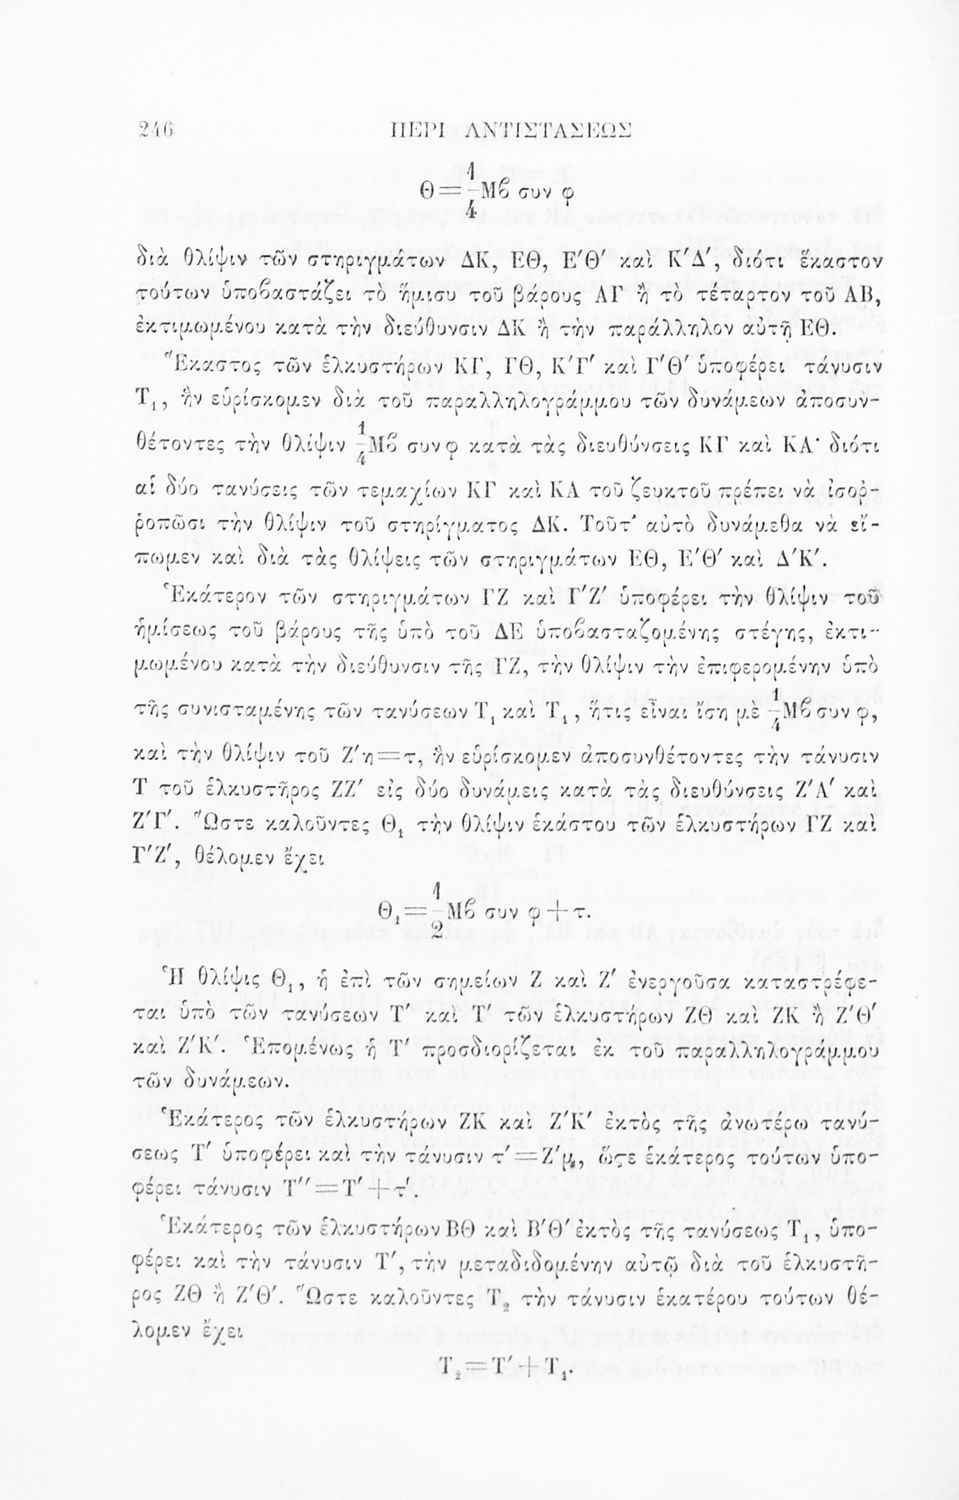 246 ΠΕΡΙ ΑΝΤΙΣΤΑΣΕΩΣ
Θ = 1/4 Μϐ συν φ
διὰ θλίψιν τῶν στηριγμάτων ΔΚ, ΕΘ, Ε'Θ' καὶ Κ'Δ', διότι ἕκαστον
τούτων ὑποϐαστάζει τὸ ἥμισυ τοῦ βάρους ΑΓ ἢ τὸ τέταρτον τοῦ ΑΒ,
ἐκτιμωμένου κατὰ τὴν διεύθυνσιν ΔΚ ἢ τὴν παράλληλον αὐτῇ ΕΘ.
Ἕκαστος τῶν ἑλκυστήρων ΚΓ, ΓΘ, Κ'Γ' καὶ Γ'Θ' ὑποφέρει τάνυσιν
Τ₁, ἣν εὑρίσκομεν διὰ τοῦ παραλληλογράμμου τῶν δυνάμεων ἀποσυν-
θέτοντες τὴν θλίψιν 1/4 Μϐ συν φ κατὰ τὰς διευθύνσεις ΚΓ καὶ ΚΑ· διότι
αἱ δύο τανύσεις τῶν τεμαχίων ΚΓ καὶ ΚΑ τοῦ ζευκτοῦ πρέπει νὰ ἰσορ-
ῥοπῶσι τὴν θλίψιν τοῦ στηρίγματος ΔΚ. Τοῦτ' αὐτὸ δυνάμεθα νὰ εἴ-
πωμεν καὶ διὰ τὰς θλίψεις τῶν στηριγμάτων ΕΘ, Ε'Θ' καὶ Δ'Κ'.
Ἑκάτερον τῶν στηριγμάτων ΓΖ καὶ Γ'Ζ' ὑποφέρει τὴν θλίψιν τοῦ
ἡμίσεως τοῦ βάρους τῆς ὑπὸ τοῦ ΔΕ ὑποϐασταζομένης στέγης, ἐκτι-
μωμένου κατὰ τὴν διεύθυνσιν τῆς ΓΖ, τὴν θλίψιν τὴν ἐπιφερομένην ὑπὸ
τῆς συνισταμένης τῶν τανύσεων Τ₁ καὶ Τ₁, ἥτις εἶναι ἴση μὲ 1/4 Μϐ συν φ,
καὶ τὴν θλίψιν τοῦ Ζ'η = τ, ἣν εὑρίσκομεν ἀποσυνθέτοντες τὴν τάνυσιν
Τ τοῦ ἑλκυστῆρος ΖΖ' εἰς δύο δυνάμεις κατὰ τὰς διευθύνσεις Ζ'Α' καὶ
Ζ'Γ'. Ὥστε καλοῦντες Θ₁ τὴν θλίψιν ἑκάστου τῶν ἑλκυστήρων ΓΖ καὶ
Γ'Ζ', θέλομεν ἔχει
Θ₁ = 1/2 Μϐ συν φ + τ.
Ἡ θλίψις Θ₁, ἡ ἐπὶ τῶν σημείων Ζ καὶ Ζ' ἐνεργοῦσα καταστρέφε-
ται ὑπὸ τῶν τανύσεων Τ' καὶ Τ' τῶν ἑλκυστήρων ΖΘ καὶ ΖΚ ἢ Ζ'Θ'
καὶ Ζ'Κ'. Ἑπομένως ἡ Τ' προσδιορίζεται ἐκ τοῦ παραλληλογράμμου
τῶν δυνάμεων.
Ἑκάτερος τῶν ἑλκυστήρων ΖΚ καὶ Ζ'Κ' ἐκτὸς τῆς ἀνωτέρω τανύ-
σεως Τ' ὑποφέρει καὶ τὴν τάνυσιν τ' = Ζ'μ, ὥϛε ἑκάτερος τούτων ὑπο-
φέρει τάνυσιν Τ'' = Τ' + τ'.
Ἑκάτερος τῶν ἑλκυστήρων ΒΘ καὶ Β'Θ' ἐκτὸς τῆς τανύσεως Τ₁, ὑπο-
φέρει καὶ τὴν τάνυσιν Τ', τὴν μεταδιδομένην αὐτῷ διὰ τοῦ ἑλκυστῆ-
ρος ΖΘ ἢ Ζ'Θ'. Ὥστε καλοῦντες Τ₂ τὴν τάνυσιν ἑκατέρου τούτων θέ-
λομεν ἔχει
Τ₂ = Τ' + Τ₁.